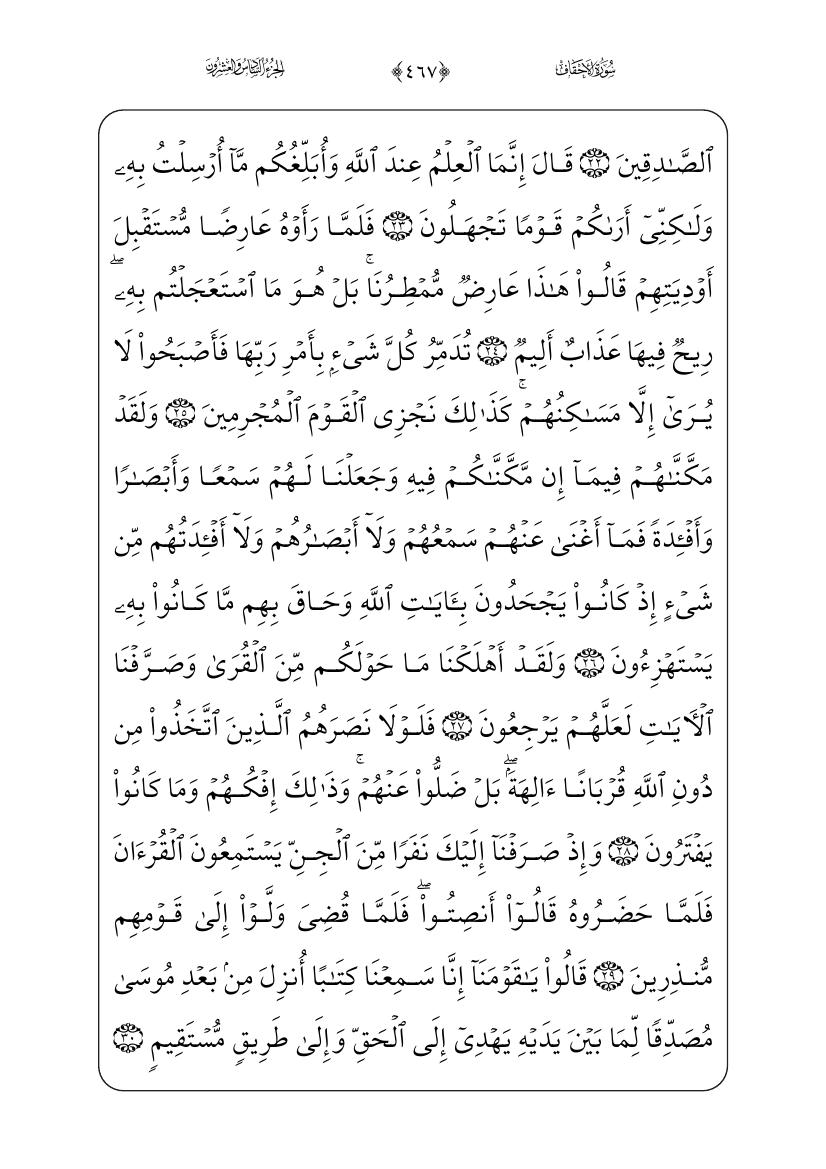 سُورَةُ الأَحْقَافِ ﴿٤٦٧﴾ الجُزْءُ السَّادِسُ وَالعِشْرُونَ
ٱلصَّـٰدِقِينَ ٢٢ قَالَ إِنَّمَا ٱلْعِلْمُ عِندَ ٱللَّهِ وَأُبَلِّغُكُم مَّآ أُرْسِلْتُ بِهِۦ
وَلَـٰكِنِّىٓ أَرَىٰكُمْ قَوْمًا تَجْهَلُونَ ٢٣ فَلَمَّا رَأَوْهُ عَارِضًا مُّسْتَقْبِلَ
أَوْدِيَتِهِمْ قَالُوا۟ هَـٰذَا عَارِضٌ مُّمْطِرُنَا ۚ بَلْ هُوَ مَا ٱسْتَعْجَلْتُم بِهِۦ ۖ
رِيحٌ فِيهَا عَذَابٌ أَلِيمٌ ٢٤ تُدَمِّرُ كُلَّ شَىْءٍۭ بِأَمْرِ رَبِّهَا فَأَصْبَحُوا۟ لَا
يُرَىٰٓ إِلَّا مَسَـٰكِنُهُمْ ۚ كَذَٰلِكَ نَجْزِى ٱلْقَوْمَ ٱلْمُجْرِمِينَ ٢٥ وَلَقَدْ
مَكَّنَّـٰهُمْ فِيمَآ إِن مَّكَّنَّـٰكُمْ فِيهِ وَجَعَلْنَا لَهُمْ سَمْعًا وَأَبْصَـٰرًا
وَأَفْـِٔدَةً فَمَآ أَغْنَىٰ عَنْهُمْ سَمْعُهُمْ وَلَآ أَبْصَـٰرُهُمْ وَلَآ أَفْـِٔدَتُهُم مِّن
شَىْءٍ إِذْ كَانُوا۟ يَجْحَدُونَ بِـَٔايَـٰتِ ٱللَّهِ وَحَاقَ بِهِم مَّا كَانُوا۟ بِهِۦ
يَسْتَهْزِءُونَ ٢٦ وَلَقَدْ أَهْلَكْنَا مَا حَوْلَكُم مِّنَ ٱلْقُرَىٰ وَصَرَّفْنَا
ٱلْـَٔايَـٰتِ لَعَلَّهُمْ يَرْجِعُونَ ٢٧ فَلَوْلَا نَصَرَهُمُ ٱلَّذِينَ ٱتَّخَذُوا۟ مِن
دُونِ ٱللَّهِ قُرْبَانًا ءَالِهَةًۢ ۖ بَلْ ضَلُّوا۟ عَنْهُمْ ۚ وَذَٰلِكَ إِفْكُهُمْ وَمَا كَانُوا۟
يَفْتَرُونَ ٢٨ وَإِذْ صَرَفْنَآ إِلَيْكَ نَفَرًا مِّنَ ٱلْجِنِّ يَسْتَمِعُونَ ٱلْقُرْءَانَ
فَلَمَّا حَضَرُوهُ قَالُوٓا۟ أَنصِتُوا۟ ۖ فَلَمَّا قُضِىَ وَلَّوْا۟ إِلَىٰ قَوْمِهِم
مُّنذِرِينَ ٢٩ قَالُوا۟ يَـٰقَوْمَنَآ إِنَّا سَمِعْنَا كِتَـٰبًا أُنزِلَ مِنۢ بَعْدِ مُوسَىٰ
مُصَدِّقًا لِّمَا بَيْنَ يَدَيْهِ يَهْدِىٓ إِلَى ٱلْحَقِّ وَإِلَىٰ طَرِيقٍ مُّسْتَقِيمٍ ٣٠